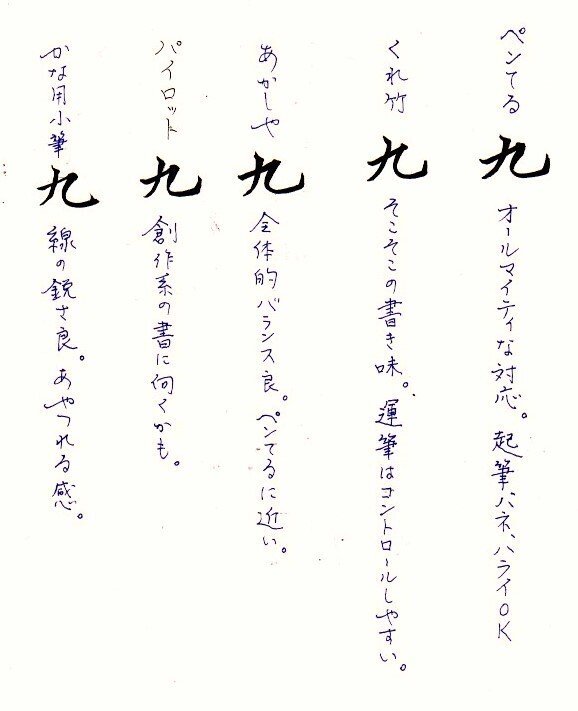 ペンてる 九 オールマイティな対応。起筆ハネ、ハライOK
くれ竹 九 そこそこの書き味。運筆はコントロールしやすい。
あかしや 九 全体的バランス良。ペンてるに近い。
パイロット 九 創作系の書に向くかも。
かな用小筆 九 線の鋭さ良。あやつれる感。